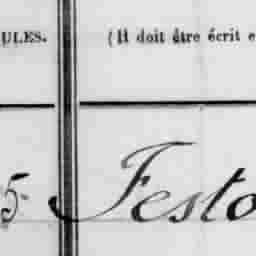 ULES. (Il doit être écrit e
5 Festo